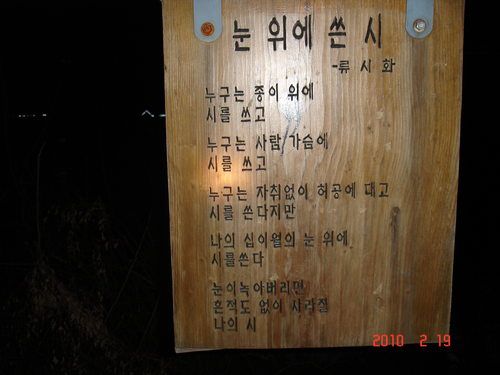 눈 위에 쓴 시
-류 시 화
누구는 종이 위에
시를 쓰고
누구는 사람 가슴에
시를 쓰고
누구는 자취없이 허공에 대고
시를 쓴다지만
나의 십이월의 눈 위에
시를쓴다
눈이녹아버리면
흔적도 없이 사라질
나의 시
2010 2 19